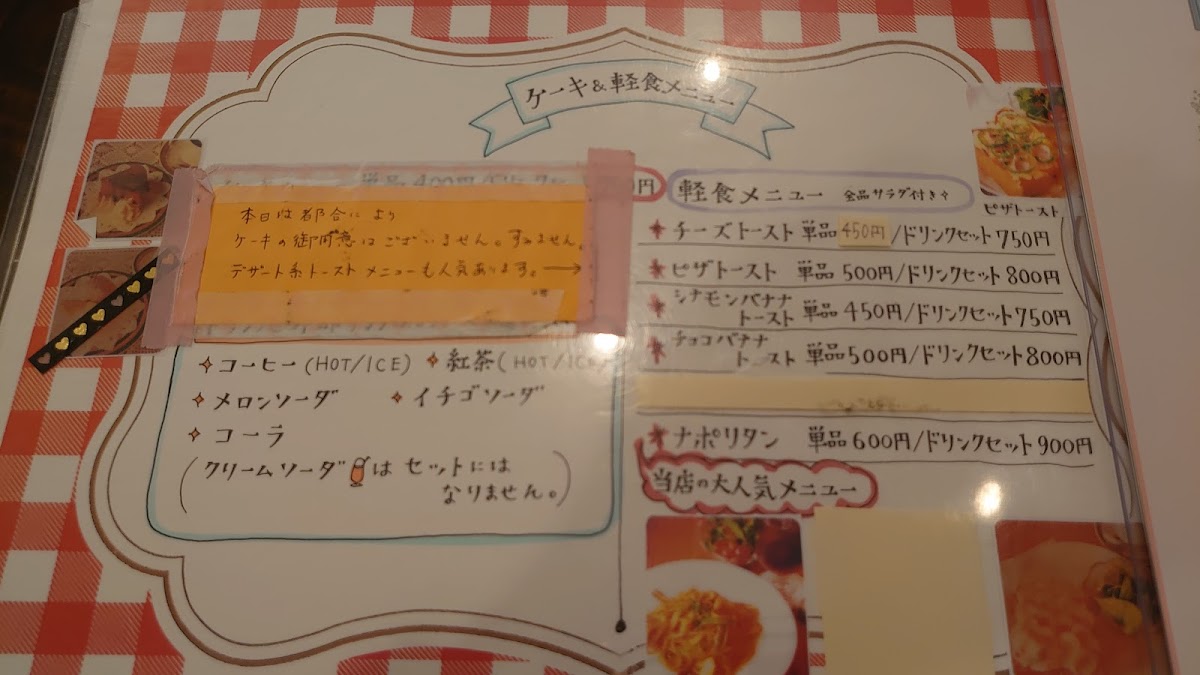 ケーキ&軽食メニュー
単品400円
円
本日は都合により
ケーキの御用意はございません。すみません。
デザート系トーストメニューも人気あります。→
✧コーヒー(HOT/ICE) ✧紅茶(HOT/ICE)
✧メロンソーダ ✧イチゴソーダ
✧コーラ
(クリームソーダはセットには
なりません。)
軽食メニュー 全品サラダ付き✧
ピザトースト
チーズトースト 単品450円/ドリンクセット750円
ピザトースト 単品500円/ドリンクセット800円
シナモンバナナ
トースト 単品450円/ドリンクセット750円
チョコバナナ
トースト 単品500円/ドリンクセット800円
ナポリタン 単品600円/ドリンクセット900円
当店の大人気メニュー